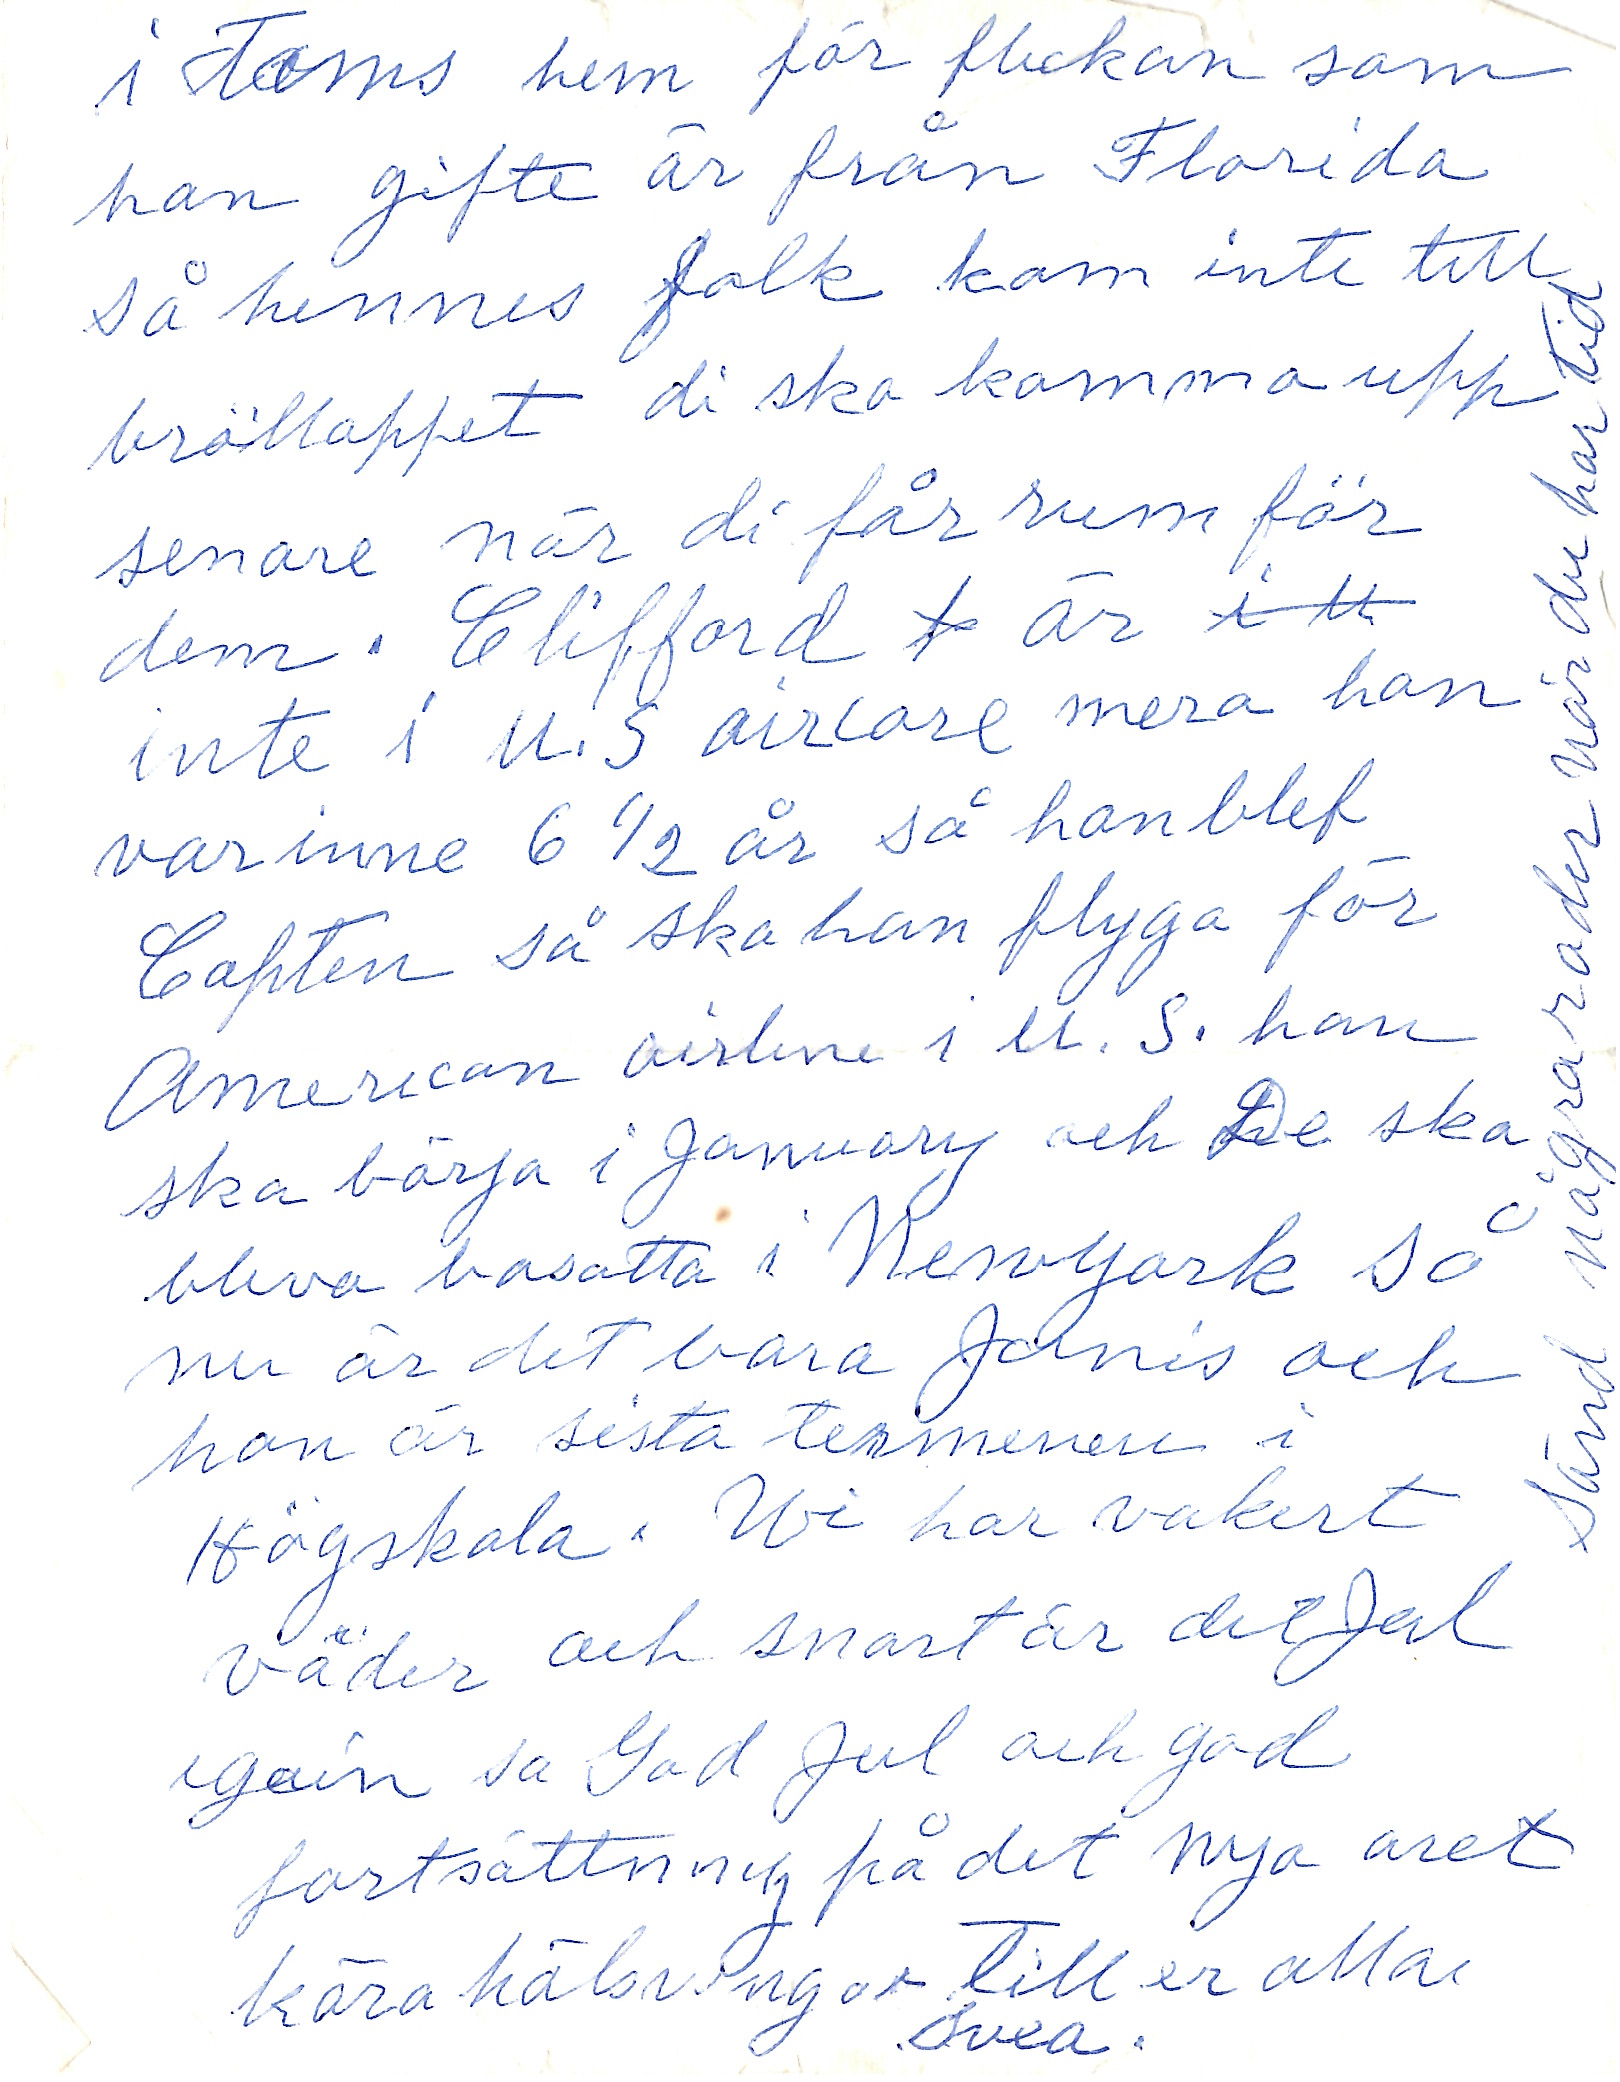 i Toms hem för flickan som
han gifte är från Florida
så hennes folk kom inte till
brölloppet di ska komma upp
senare när di får rum för
dem. Clifford är
inte i U.S aircore mera han
var inne 6 1/2 år så han blef
Capten så ska han flyga för
American airline i U.S. han
ska börja i January och De ska
bliva bosatta i Newyork så
nu är det bara Janis och
hon är sista termenen i
Högskola. Wi har vakert
väder och snart är det Jul
igein so God Jul och god
fortsättning på det nya aret
kära hälsningar Till er alla
Svea.
Sänd några rader när du har tid